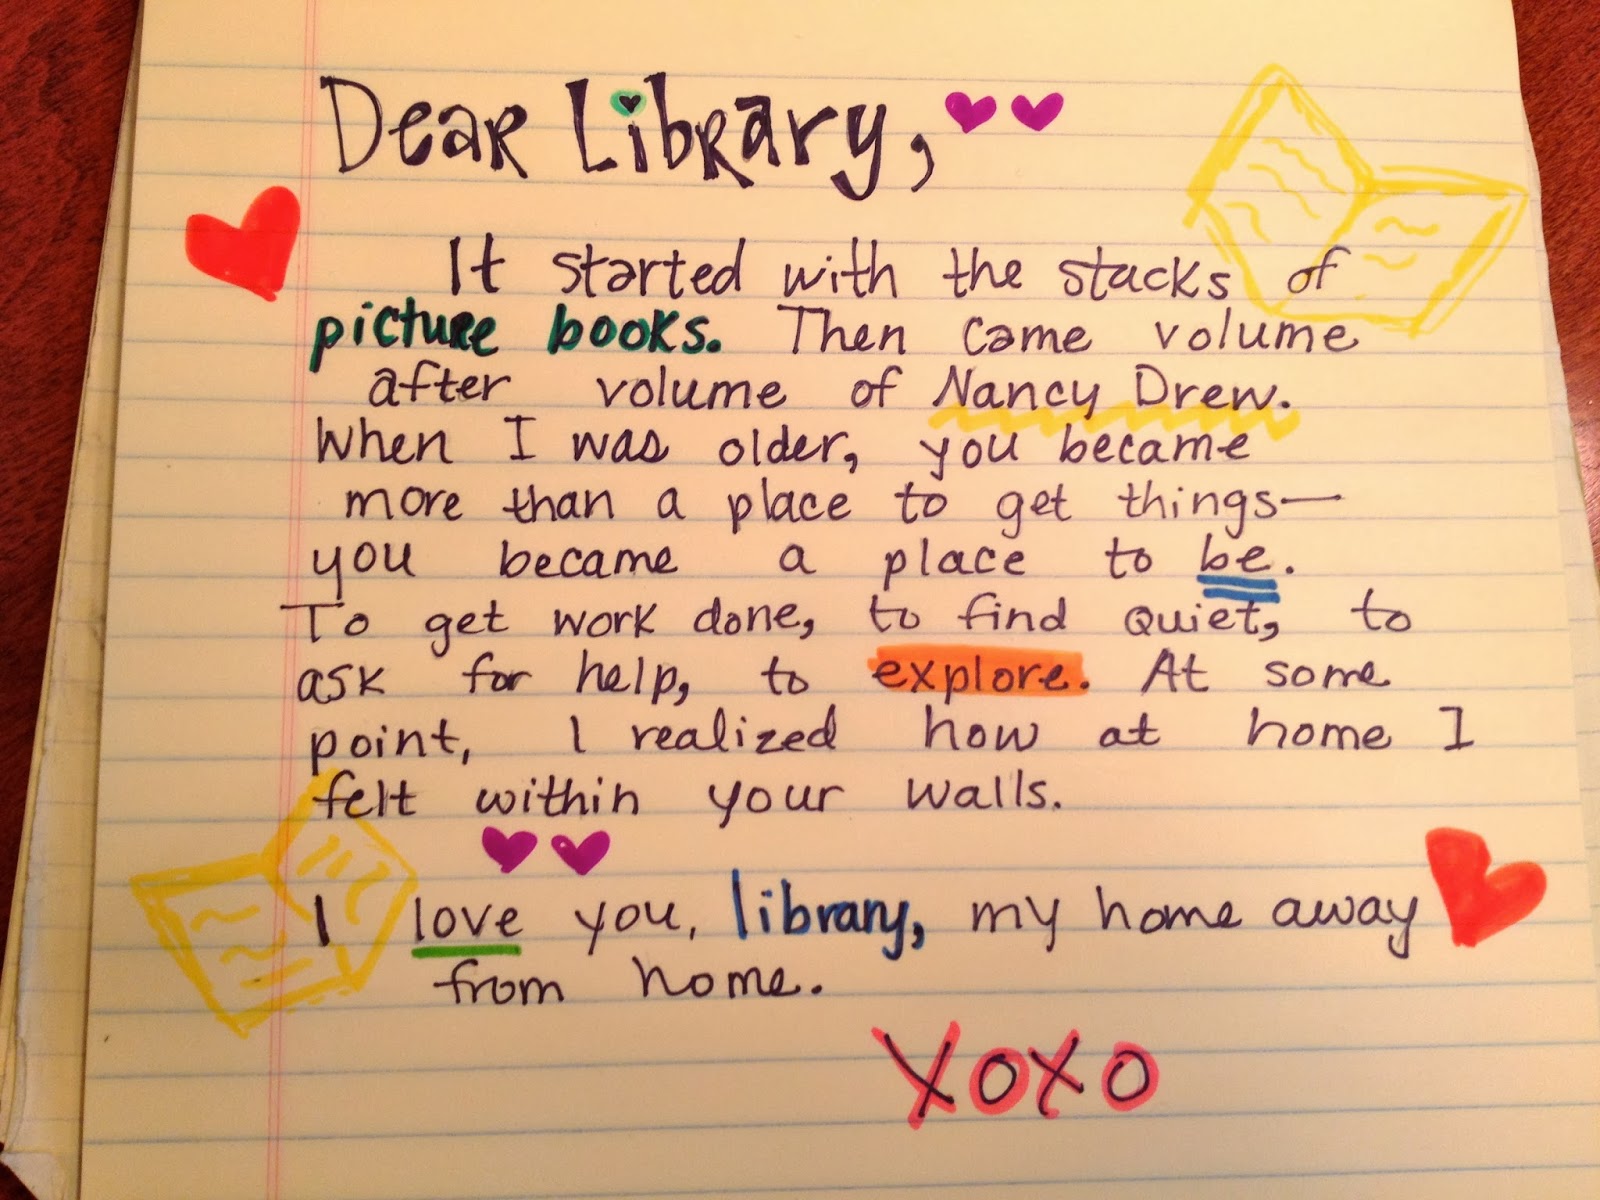 Dear Library,
It started with the stacks of
picture books. Then came volume
after volume of Nancy Drew.
When I was older, you became
more than a place to get things—
you became a place to be.
To get work done, to find quiet, to
ask for help, to explore. At some
point, I realized how at home I
felt within your walls.
I love you, library, my home away
from home.
XOXO